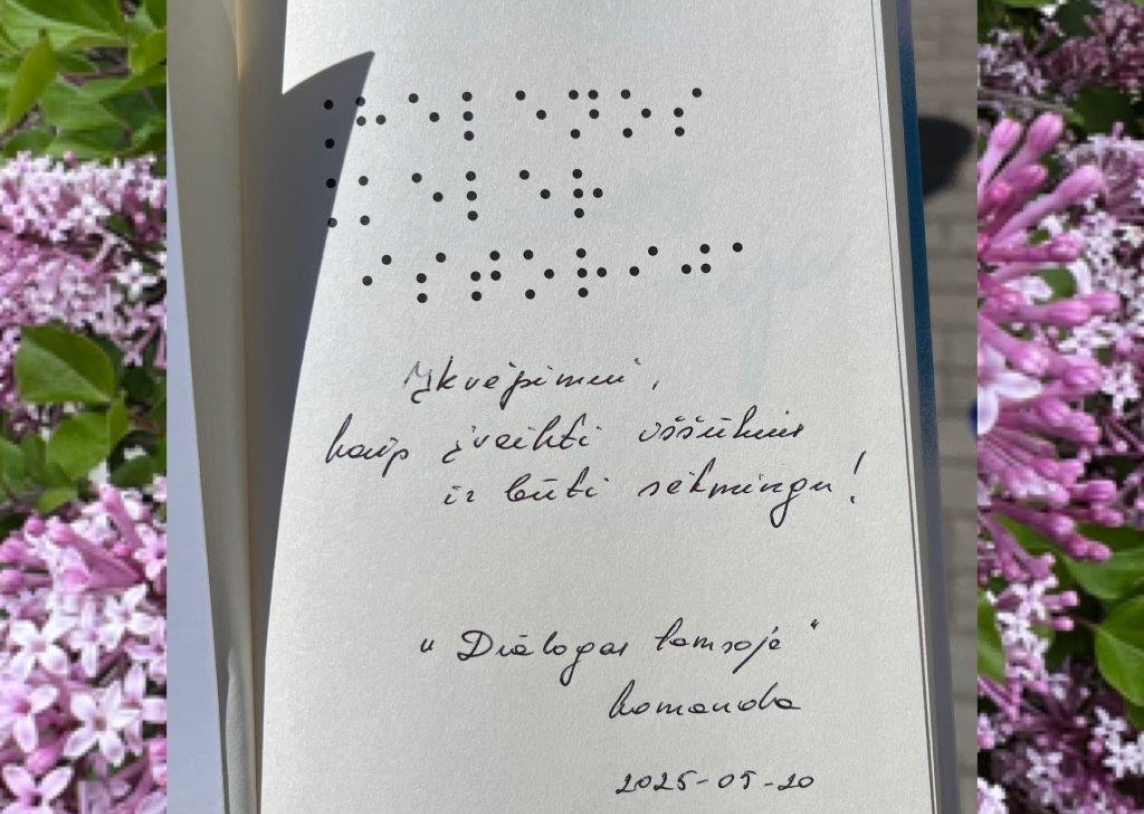 ⠨⠓⠑⠇⠑⠝⠕⠎
⠨⠅⠑⠇⠑⠗
⠊⠎⠞⠕⠗⠊⠚⠁
Įkvėpimui,
kaip įveikti iššūkius
ir būti sėkmingu!
„Dialogas tamsoje“
komanda
2025-05-20